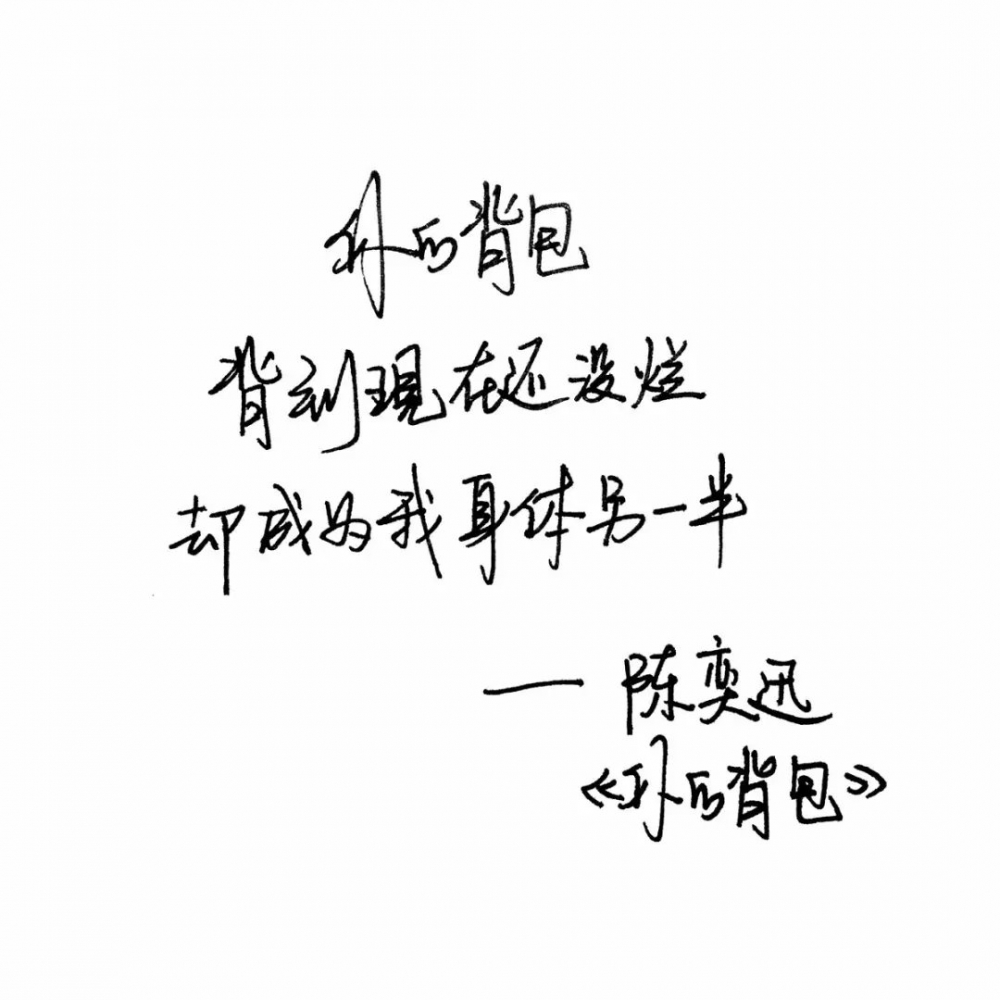 你的背包
背到現在还没烂
却成为我身体另一半
——陈奕迅
《你的背包》